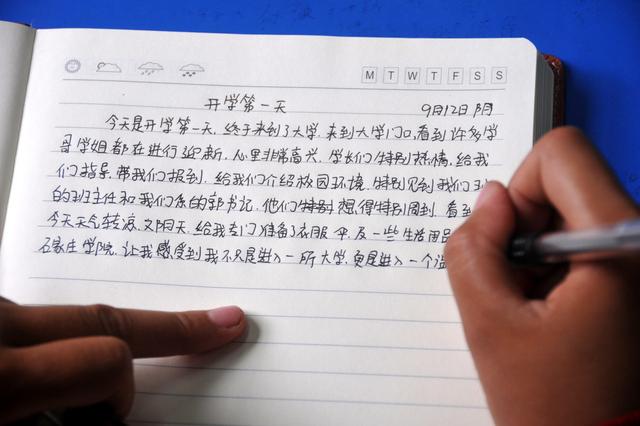 M T W T F S S
开学第一天 9月12日 阴
今天是开学第一天,终于来到了大学,来到大学门口,看到许多学
哥学姐都在进行迎新,心里非常高兴,学长们特别热情,给我
们指导,带我们报到,给我们介绍校园环境,特别见到我们
的班主任和我们系的郭书记,他们特别想得特别周到,看到
今天天气转凉,又阴天,给我们准备了衣服,伞,及一些生活用品
石家庄学院,让我感受到我不只是进入一所大学,更是进入一个